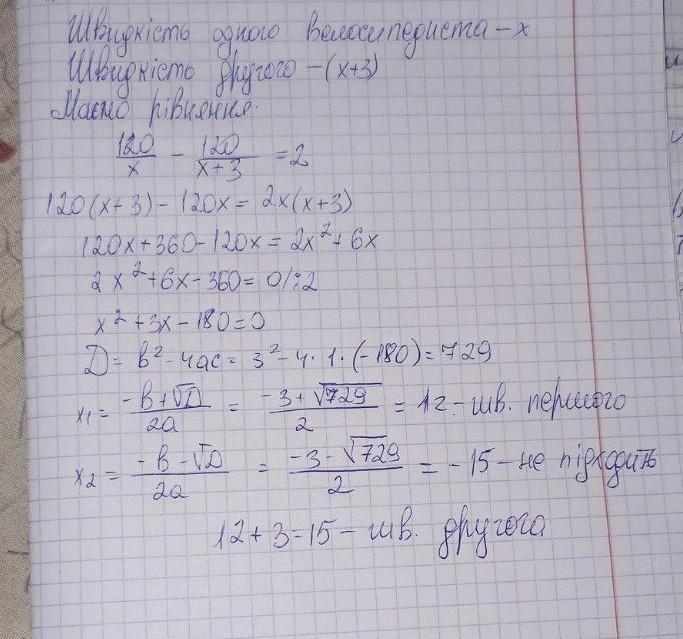 Швидкість одного велосипедиста – x
Швидкість другого – (x+3)
Маємо рівняння:
120/x - 120/(x+3) = 2
120(x+3) - 120x = 2x(x+3)
120x+360-120x = 2x²+6x
2x²+6x-360=0/:2
x²+3x-180=0
D = b²-4ac = 3²-4·1·(-180)=729
x₁ = (-b+√D)/2a = (-3+√729)/2 = 12 - шв. першого
x₂ = (-b-√D)/2a = (-3-√729)/2 = -15 - не підходить
12+3=15 - шв. другого